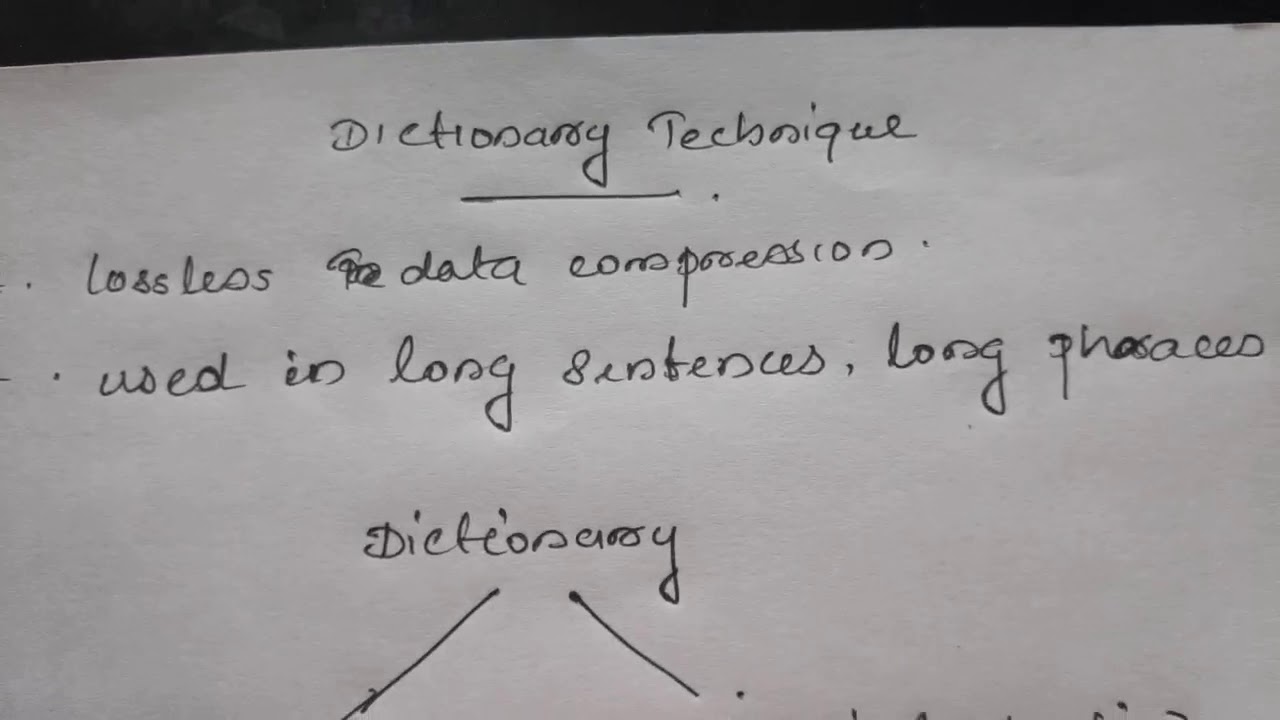 Dictionary Technique
. lossless data compression.
. used in long sentences, long phraces
Dictionary